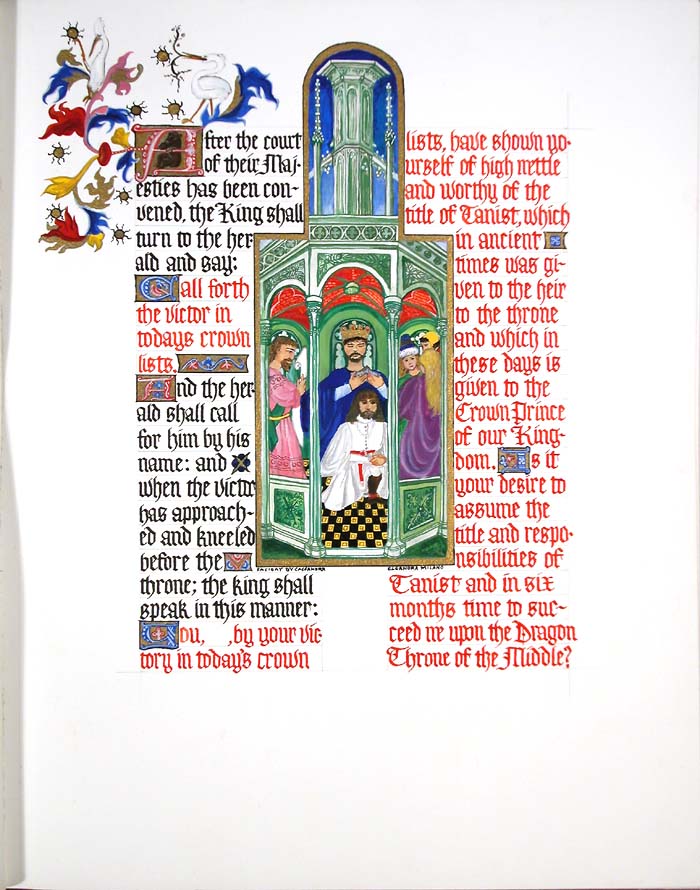 After the court
of their Maj-
esties has been con-
vened, the King shall
turn to the her-
ald and say:
Call forth
the victor in
todays crown
lists.
And the her-
ald shall call
for him by his
name: and
when the victor
has approach-
ed and kneeled
before the
throne; the king shall
speak in this manner:
You, ,by your vic-
tory in today's crown
lists, have shown yo-
urself of high mettle
and worthy of the
title of Tanist, which
in ancient
times was gi-
ven to the heir
to the throne
and which in
these days is
given to the
Crown Prince
of our King-
dom. Is it
your desire to
assume the
title and respo-
nsibilities of
Tanist and in six
months time to suc-
ceed me upon the Dragon
Throne of the Middle?
CALLIGRAPHY BY CASSANDRA
ELEANORA MILANO